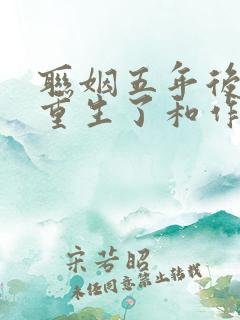 聯姻五年後
重生了和作
宋若昭
未经同意禁止转载